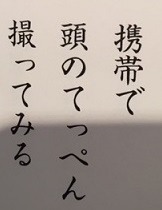 携帯で
頭のてっぺん
撮ってみる